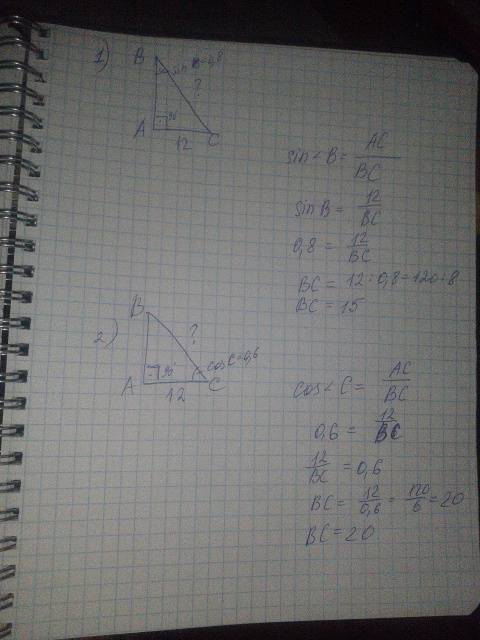 1)
B
sin B=0,8
?
A
90°
12
C
sin<B= AC/BC
sin B= 12/BC
0,8= 12/BC
BC= 12:0,8=120:8
BC= 15
2)
B
?
cos C=0,6
A
90°
12
C
cos<C= AC/BC
0,6= 12/BC
12/BC =0,6
BC= 12/0,6 = 120/6 =20
BC=20